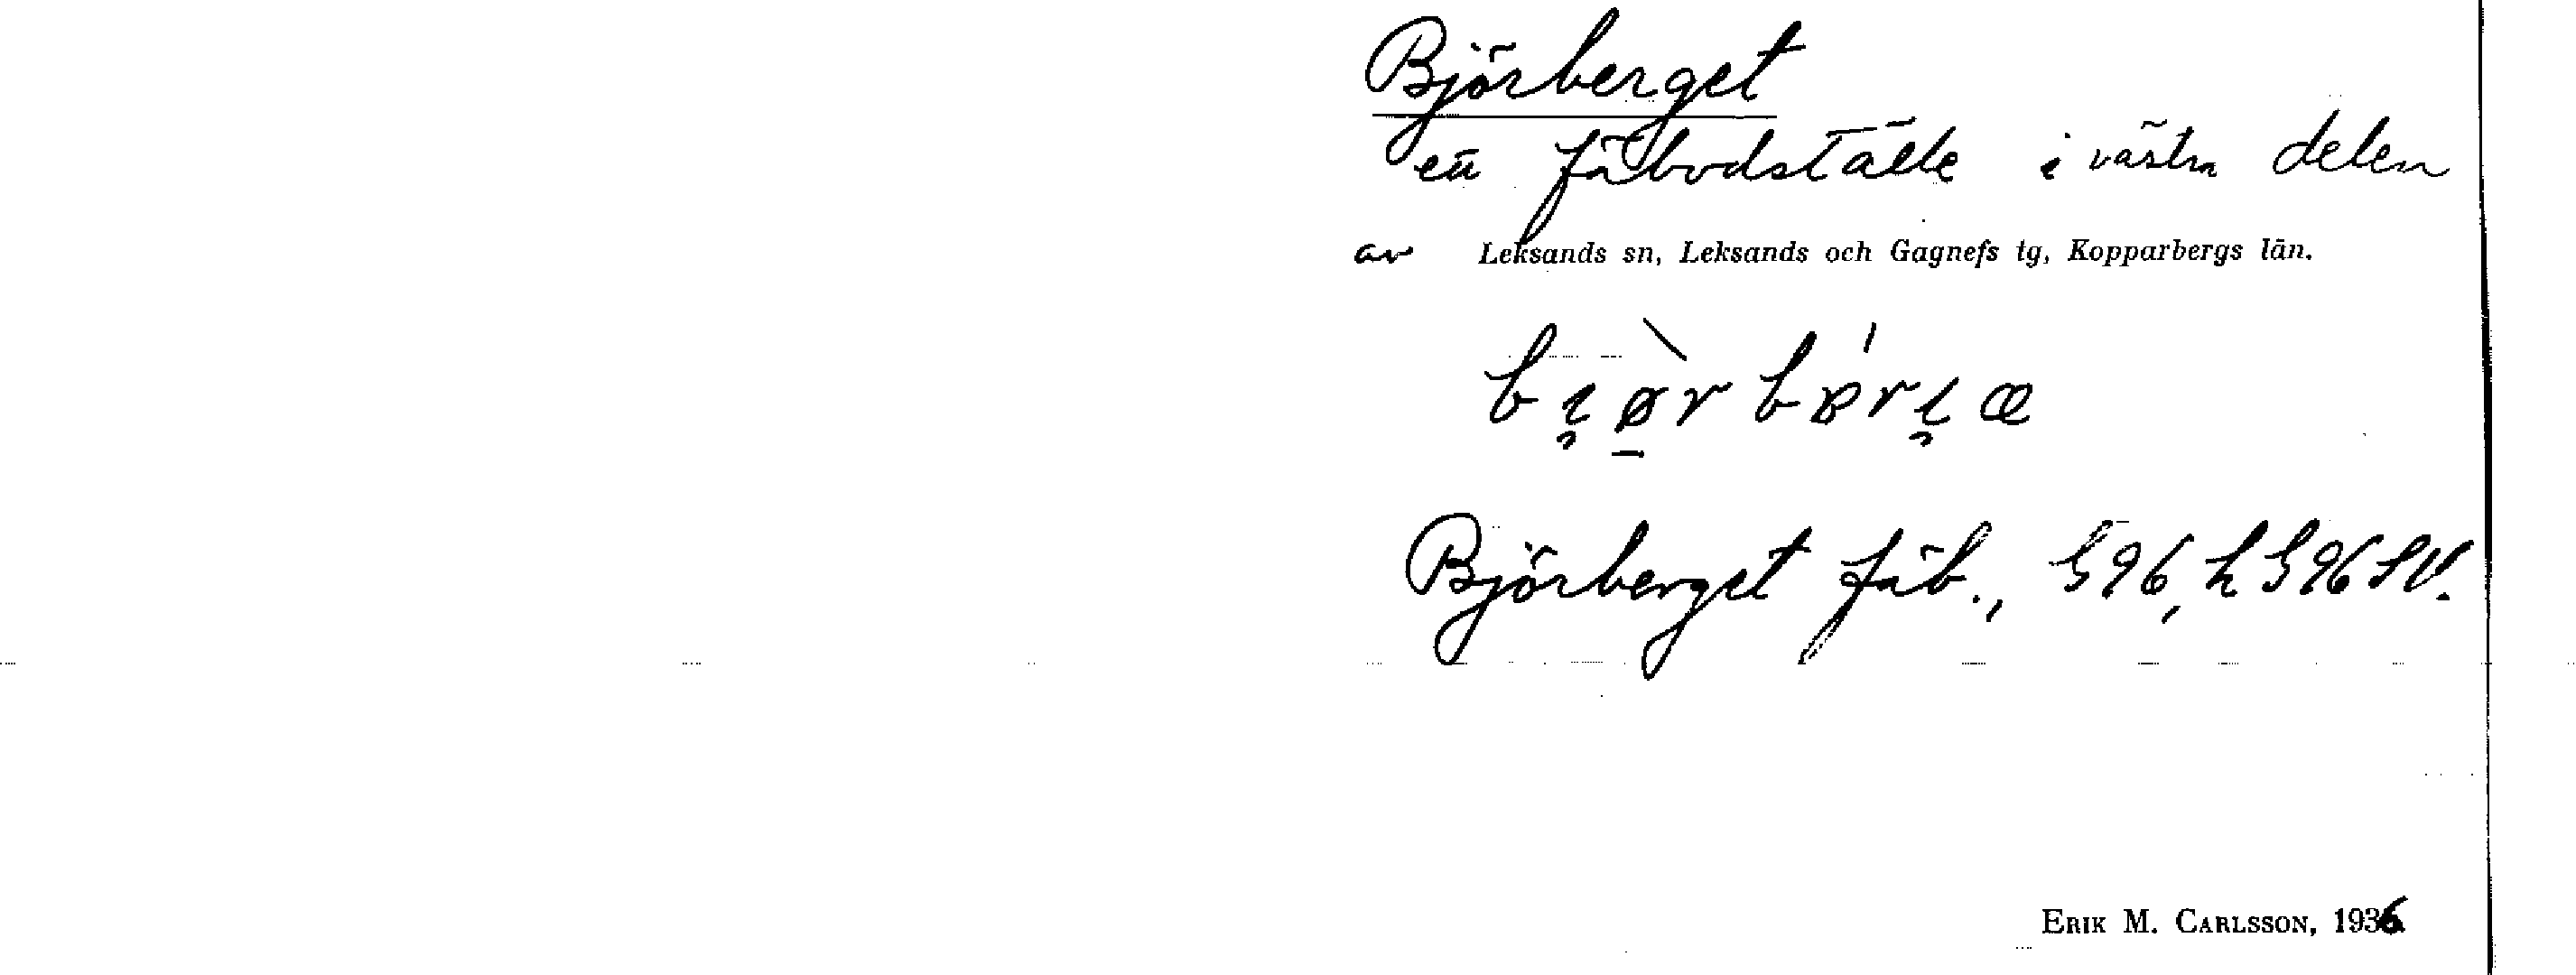 Björberget
en fäbodställe i västra delen
av Leksands sn, Leksands och Gagnefs tg, Kopparbergs län.
Björberget fäb., G96, h G96 SV.
ERIK M. CARLSSON, 1936